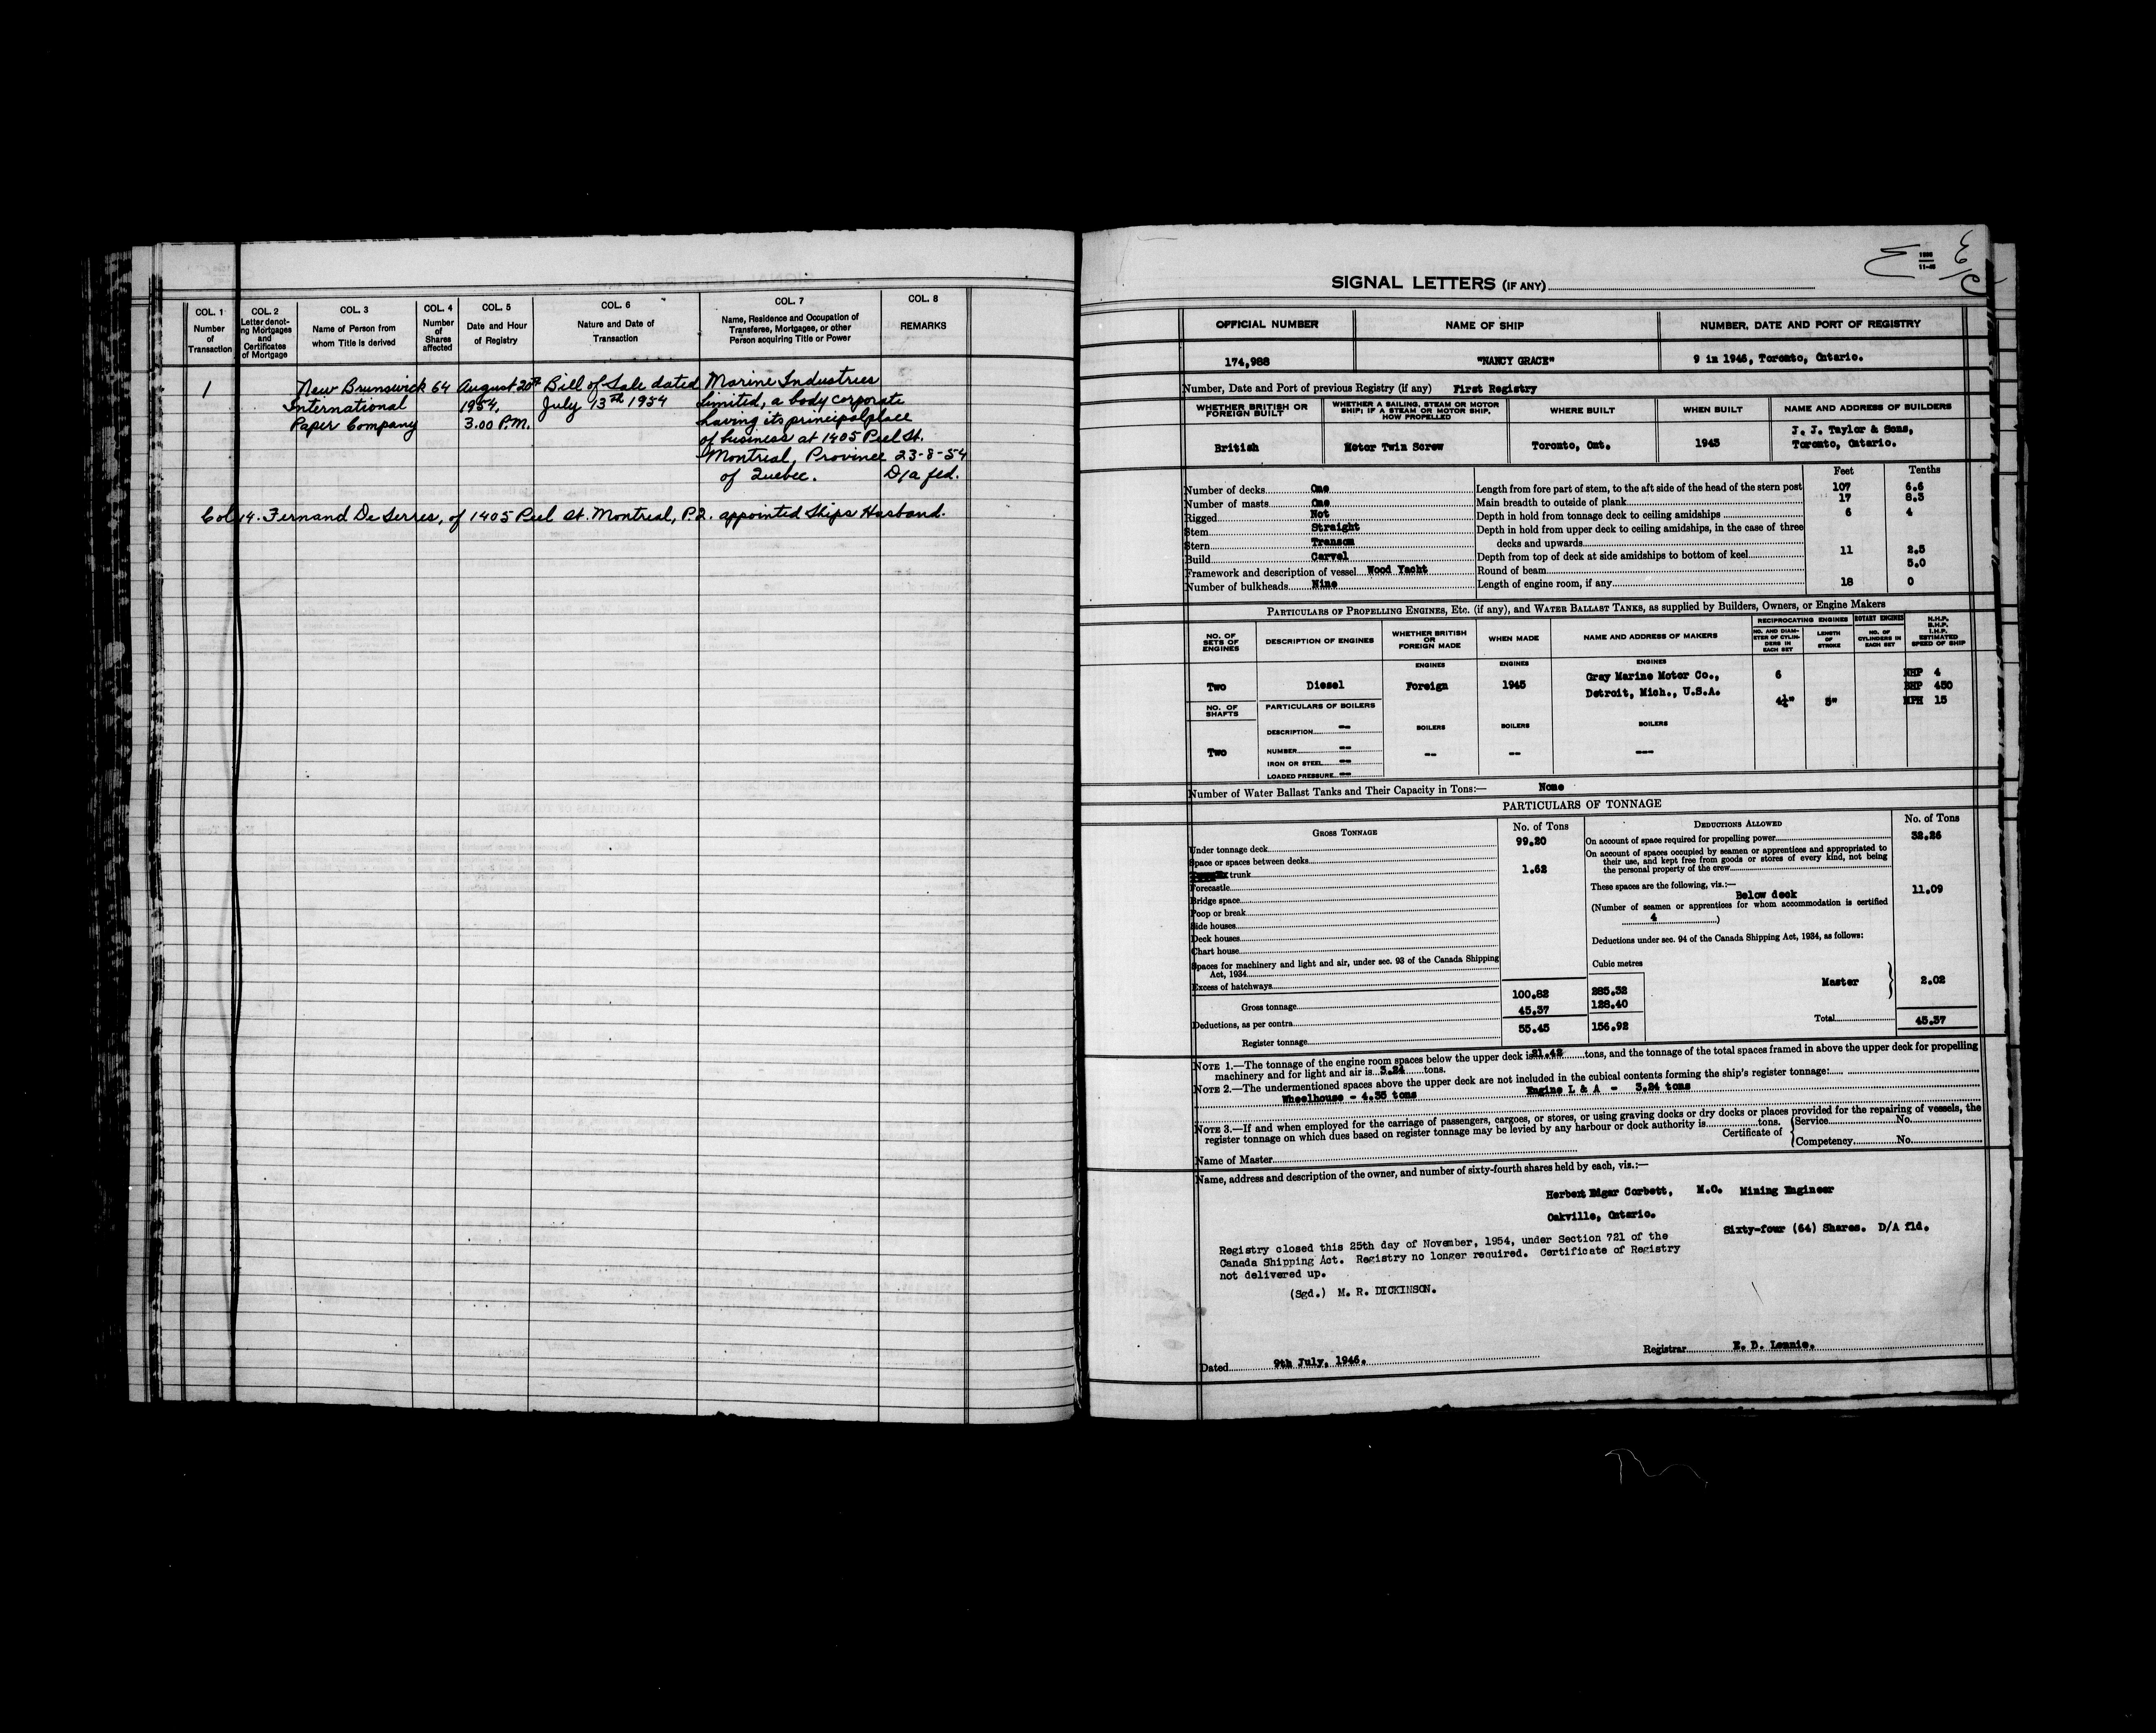 COL. 1
Number
of
Transaction
COL. 2
Letter denot-
ing Mortgages
and
Certificates
of Mortgage
COL. 3
Name of Person from
whom Title is derived
COL. 4
Number
of
Shares
affected
COL. 5
Date and Hour
of Registry
COL. 6
Nature and Date of
Transaction
COL. 7
Name, Residence and Occupation of
Transferee, Mortgagee, or other
Person acquiring Title or Power
COL. 8
REMARKS
1 New Brunswick 64 August 20th Bill of Sale dated Marine Industries
International 1954, July 13th 1954 Limited, a body corporate
Paper Company 3.00 P.M. having its principal place
of business at 1405 Peel St.
Montreal, Province 23-8-54
of Quebec. D/a fed.
Col 14. Fernand De Serres, of 1405 Peel St. Montreal, P.Q. appointed Ships Husband.
SIGNAL LETTERS (IF ANY)
11-45
OFFICIAL NUMBER NAME OF SHIP NUMBER, DATE AND PORT OF REGISTRY
174,988 "NANCY GRACE" 9 in 1946, Toronto, Ontario.
Number, Date and Port of previous Registry (if any) First Registry
WHETHER BRITISH OR
FOREIGN BUILT
WHETHER A SAILING, STEAM OR MOTOR
SHIP; IF A STEAM OR MOTOR SHIP,
HOW PROPELLED
WHERE BUILT
WHEN BUILT
NAME AND ADDRESS OF BUILDERS
British Motor Twin Screw Toronto, Ont. 1945 J. J. Taylor & Sons,
Toronto, Ontario.
Feet Tenths
Number of decks One
Number of masts One
Rigged Not
Stem Straight
Stern Transom
Build Carvel
Framework and description of vessel Wood Yacht
Number of bulkheads Nine
Length from fore part of stem, to the aft side of the head of the stern post 107 6.6
Main breadth to outside of plank 17 8.3
Depth in hold from tonnage deck to ceiling amidships 6 4
Depth in hold from upper deck to ceiling amidships, in the case of three
decks and upwards
Depth from top of deck at side amidships to bottom of keel 11 2.5
Round of beam 5.0
Length of engine room, if any 18 0
PARTICULARS OF PROPELLING ENGINES, ETC. (if any), and WATER BALLAST TANKS, as supplied by Builders, Owners, or Engine Makers
NO. OF
SETS OF
ENGINES
DESCRIPTION OF ENGINES
WHETHER BRITISH
OR
FOREIGN MADE
WHEN MADE
NAME AND ADDRESS OF MAKERS
RECIPROCATING ENGINES
NO. AND DIAM-
ETER OF CYLIN-
DERS IN
EACH SET
LENGTH
OF
STROKE
ROTARY ENGINES
NO. OF
CYLINDERS IN
EACH SET
N.H.P.
B.H.P.
I.H.P.
ESTIMATED
SPEED OF SHIP
ENGINES ENGINES ENGINES
Two Diesel Foreign 1945 Gray Marine Motor Co., 6 NHP 4
Detroit, Mich., U.S.A. BHP 450
4¼" 5" MPH 15
NO. OF
SHAFTS
PARTICULARS OF BOILERS
BOILERS BOILERS BOILERS
DESCRIPTION --
Two NUMBER -- -- -- ---
IRON OR STEEL --
LOADED PRESSURE --
Number of Water Ballast Tanks and Their Capacity in Tons:— None
PARTICULARS OF TONNAGE
GROSS TONNAGE No. of Tons
Under tonnage deck 99.20
Space or spaces between decks
trunk 1.62
Forecastle
Bridge space
Poop or break
Side houses
Deck houses
Chart house
Spaces for machinery and light and air, under sec. 93 of the Canada Shipping
Act, 1934
Excess of hatchways
Cubic metres
Gross tonnage 100.82 285.32
Deductions, as per contra 45.37 128.40
Register tonnage 55.45 156.92
DEDUCTIONS ALLOWED No. of Tons
On account of space required for propelling power 32.26
On account of spaces occupied by seamen or apprentices and appropriated to
their use, and kept free from goods or stores of every kind, not being
the personal property of the crew
These spaces are the following, viz.:—
Below deck 11.09
(Number of seamen or apprentices for whom accommodation is certified
4 )
Deductions under sec. 94 of the Canada Shipping Act, 1934, as follows:
Master 2.02
Total 45.37
NOTE 1.—The tonnage of the engine room spaces below the upper deck is 21.42 tons, and the tonnage of the total spaces framed in above the upper deck for propelling
machinery and for light and air is 3.24 tons.
NOTE 2.—The undermentioned spaces above the upper deck are not included in the cubical contents forming the ship's register tonnage:
Wheelhouse - 4.35 tons Engine L & A - 3.24 tons
NOTE 3.—If and when employed for the carriage of passengers, cargoes, or stores, or using graving docks or dry docks or places provided for the repairing of vessels, the
register tonnage on which dues based on register tonnage may be levied by any harbour or dock authority is tons.
Certificate of Service No.
Competency No.
Name of Master
Name, address and description of the owner, and number of sixty-fourth shares held by each, viz.:—
Herbert Edgar Corbett, M.C. Mining Engineer
Oakville, Ontario.
Sixty-four (64) Shares. D/A fld.
Registry closed this 25th day of November, 1954, under Section 721 of the
Canada Shipping Act. Registry no longer required. Certificate of Registry
not delivered up.
(Sgd.) M. R. DICKINSON.
Dated 9th July, 1946. Registrar E. D. Lennie.